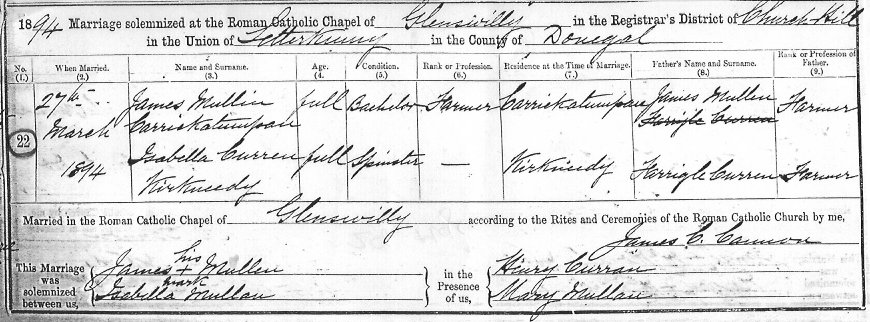 1894 Marriage solemnized at the Roman Catholic Chapel of Glenswilly in the Registrar's District of Church Hill
in the Union of Letterkinny in the County of Donegal
No. When Married. Name and Surname. Age. Condition. Rank or Profession. Residence at the Time of Marriage. Father's Name and Surname. Rank or Profession of Father.
(1.) (2.) (3.) (4.) (5.) (6.) (7.) (8.) (9.)
27th James Mullin full Bachelor Farmer Carrickatumpan James Mullen Farmer
March Carrickatumpan Farrigle Curren
22
1894 Isabella Curren full Spinster — Kirknedy Farrigle Curren Farmer
Kirknedy
Married in the Roman Catholic Chapel of Glenswilly according to the Rites and Ceremonies of the Roman Catholic Church by me,
James C. Cannon
This Marriage was solemnized between us,
James his + mark Mullen
Isabella Mullan
in the Presence of us,
Henry Curran
Mary Mullan